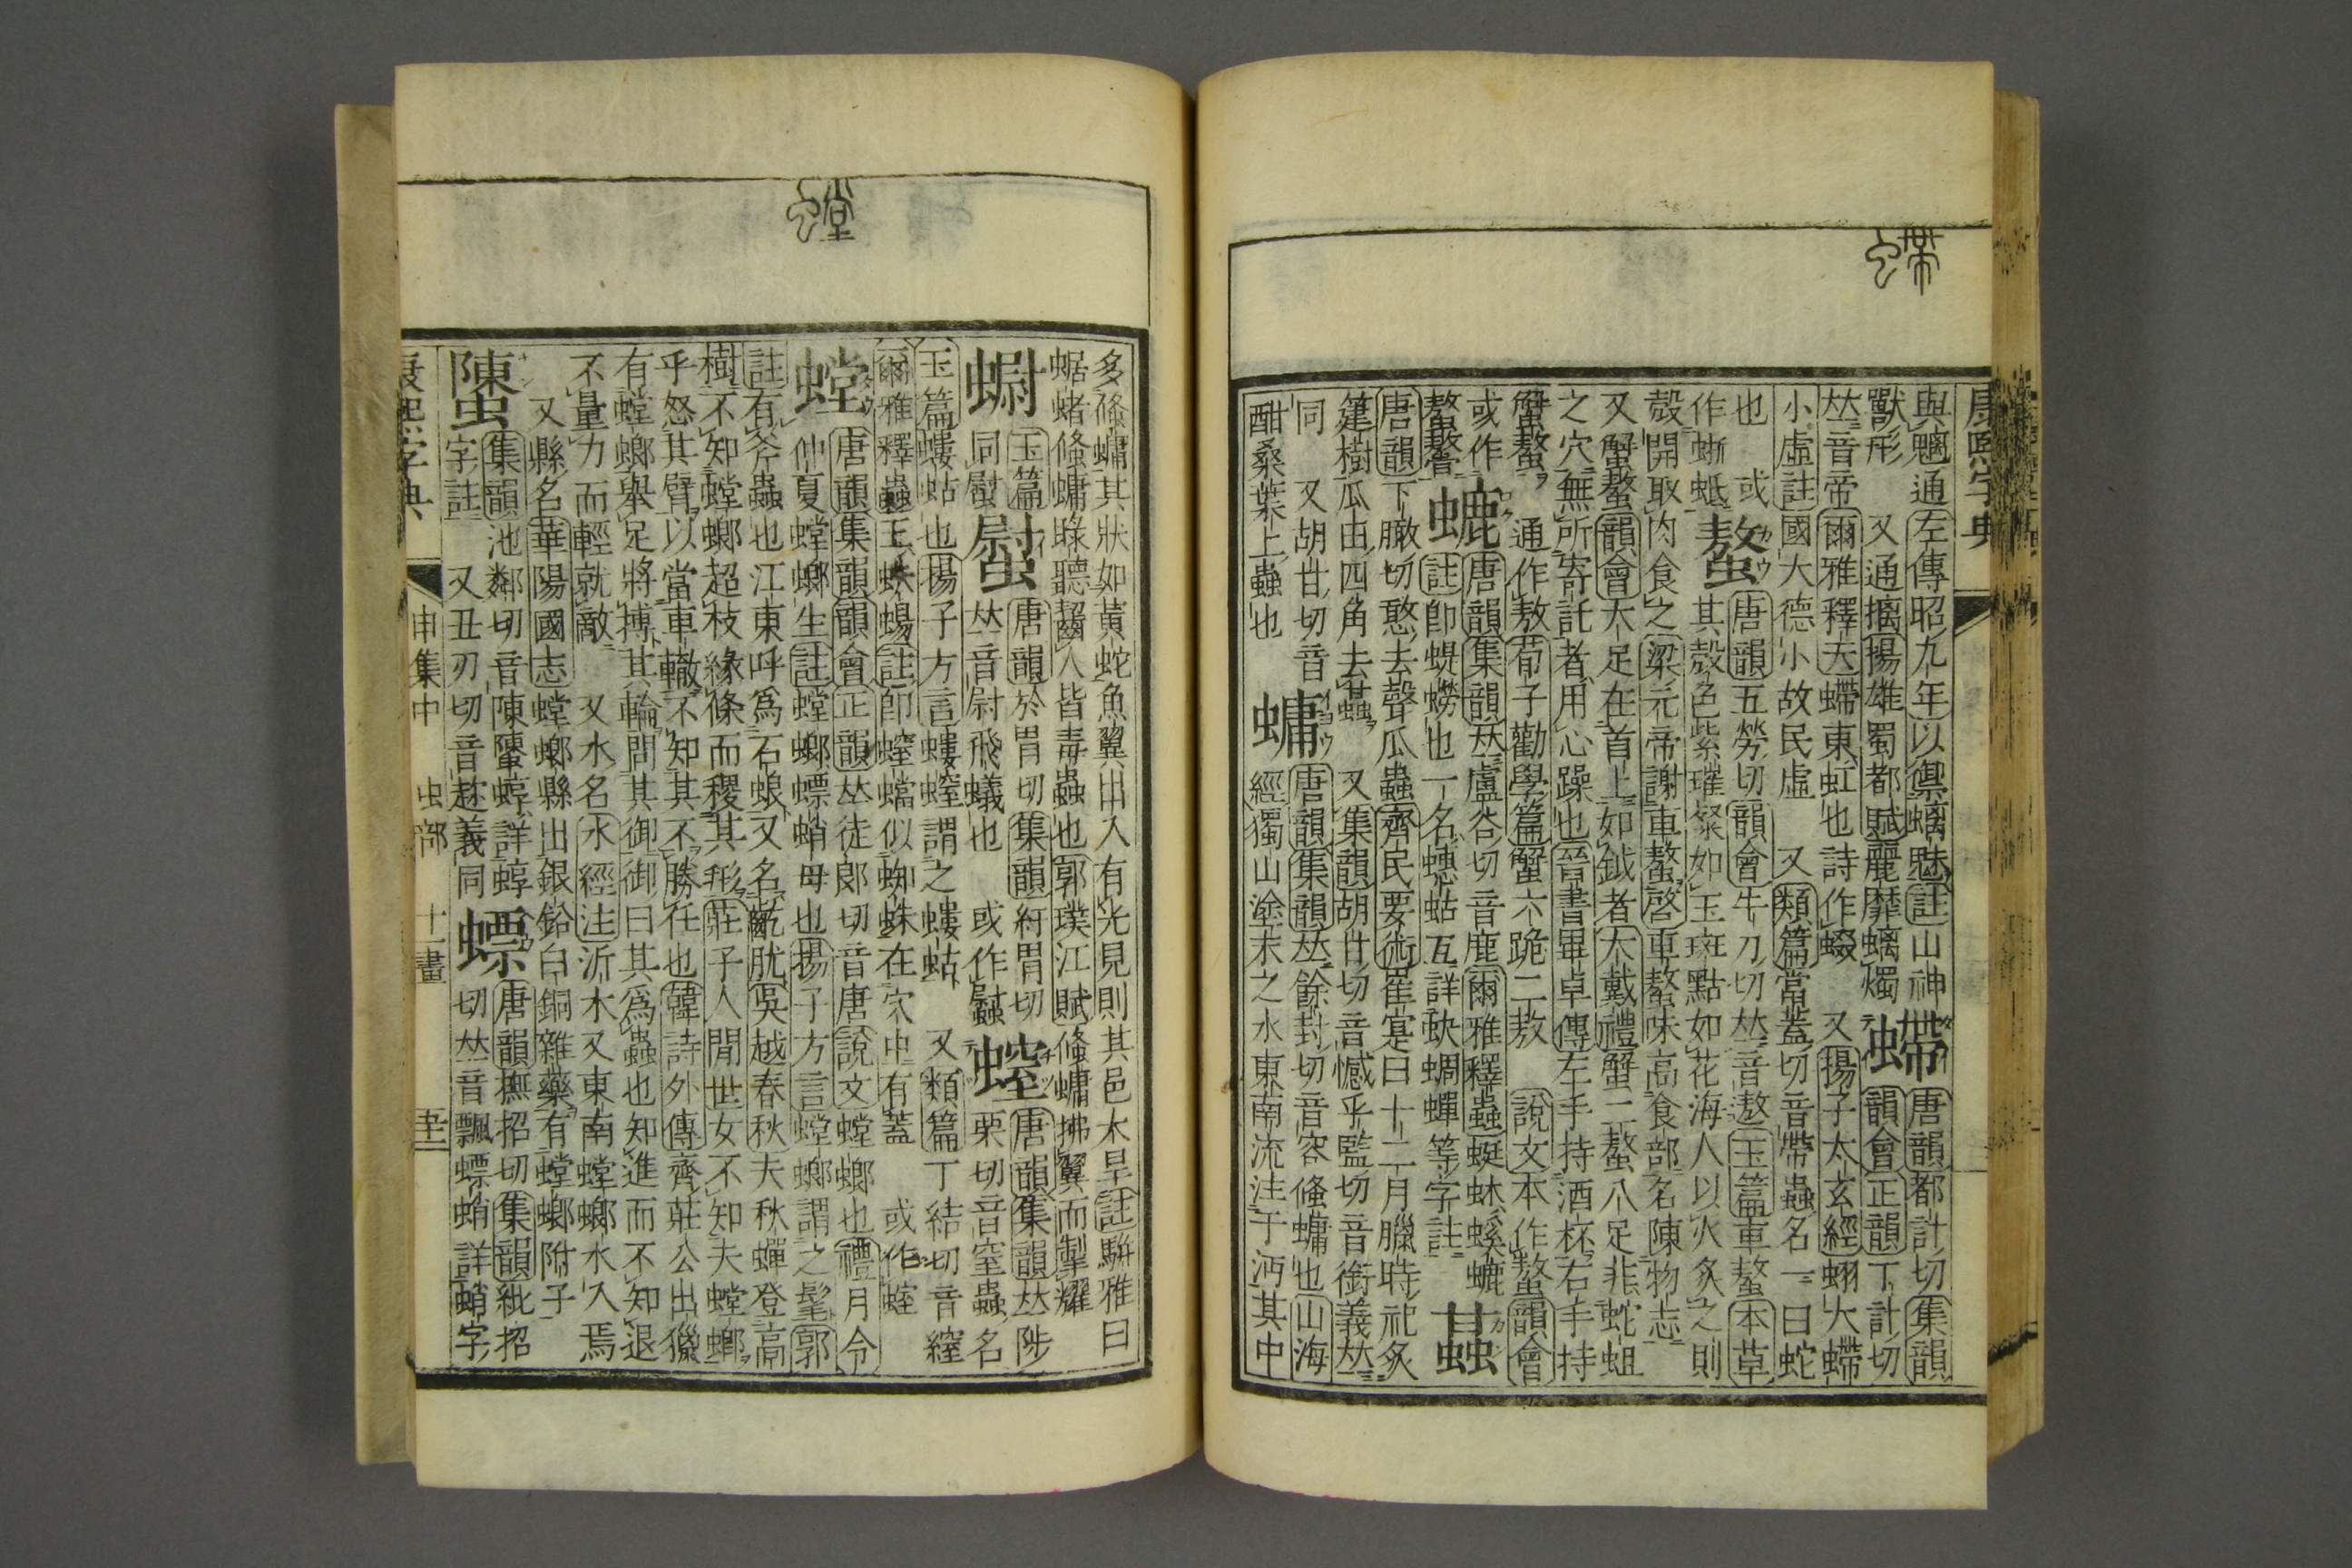 與魑通左傳昭九年以禦螭魅註山神
獸形　又通摛揚雄蜀都賦麗靡螭燭　螮唐韻都計切集韻
韻會正韻丁計切
𠀤音帝爾雅釋天螮蝀虹也詩作蝃　又揚子太玄經蛡大螮
小虛註國大德小故民虛　又類篇當蓋切音帶蟲名一曰蛇
也　或
作蜥蚳　螯唐韻五勞切韻會牛刀切𠀤音遨玉篇車螯本草
其殼色紫璀粲如玉斑點如花海人以火炙之則
殼開取肉食之梁元帝謝車螯啓車螯味高食部名陳物志
又蟹螯韻會大足在首上如鉞者大戴禮蟹二螯八足非蛇蛆
之穴無所寄託者用心躁也晉書畢卓傳左手持酒杯右手持
蟹螯　通作敖荀子勸學篇蟹六跪二敖　說文本作𧎬韻會
或作
螯𧎬　螰唐韻集韻𠀤盧谷切音鹿爾雅釋蟲蜓蚞螇螰
註卽蝭蟧也一名蟪蛄互詳蚗蜩蟬等字註　䗣
唐韻下瞰切憨去聲瓜蟲齊民要術崔寔曰十二月臘時祀炙
萐樹瓜田四角去䗣　又集韻胡甘切音憨乎監切音銜義𠀤
同　又胡甘切音
酣桑葉上蟲也　蟰唐韻集韻𠀤餘封切音容鯈鱅也山海
經獨山塗末之水東南流注于沔其中
康熙字典
多鯈鱅其狀如黃蛇魚翼出入有光見則其邑大旱註駢雅曰
蜛蝫鯈鱅睩聽齧人皆毒蟲也郭璞江賦鯈鱅拂翼而掣耀
螱玉篇
同𧓕　𧓕唐韻於胃切集韻紆胃切
𠀤音尉飛蟻也　或作𧓕　螲唐韻集韻𠀤陟
栗切音窒蟲名
玉篇螻蛄也揚子方言螻螲謂之螻蛄　又類篇丁結切音窒
爾雅釋蟲王蛈蝪註卽螲蟷似蜘蛛在穴中有蓋　或作蛭
螳唐韻集韻韻會正韻𠀤徒郎切音唐說文螳螂也禮月令
仲夏螳螂生註螳螂螵蛸母也揚子方言螳螂謂之髦郭
註有斧蟲也江東呼爲石蜋又名齕肬吳越春秋夫秋蟬登高
樹不知螳螂超枝緣條而稷其形莊子人閒世女不知夫螳螂
乎怒其臂以當車轍不知其不勝任也韓詩外傳齊莊公出獵
有螳螂舉足將搏其輪問其御御曰其爲蟲也知進而不知退
不量力而輕就敵　又水名水經注沂水又東南螳螂水入焉
又縣名華陽國志螳螂縣出銀鉛白銅雜藥有螳螂附子
螴集韻池鄰切音陳螴蜳詳蜳
字註　又丑刃切音趁義同　螵唐韻撫招切集韻紕招
切𠀤音飄螵蛸詳蛸字
康熙字典　申集中　虫部　十一畫　五十一